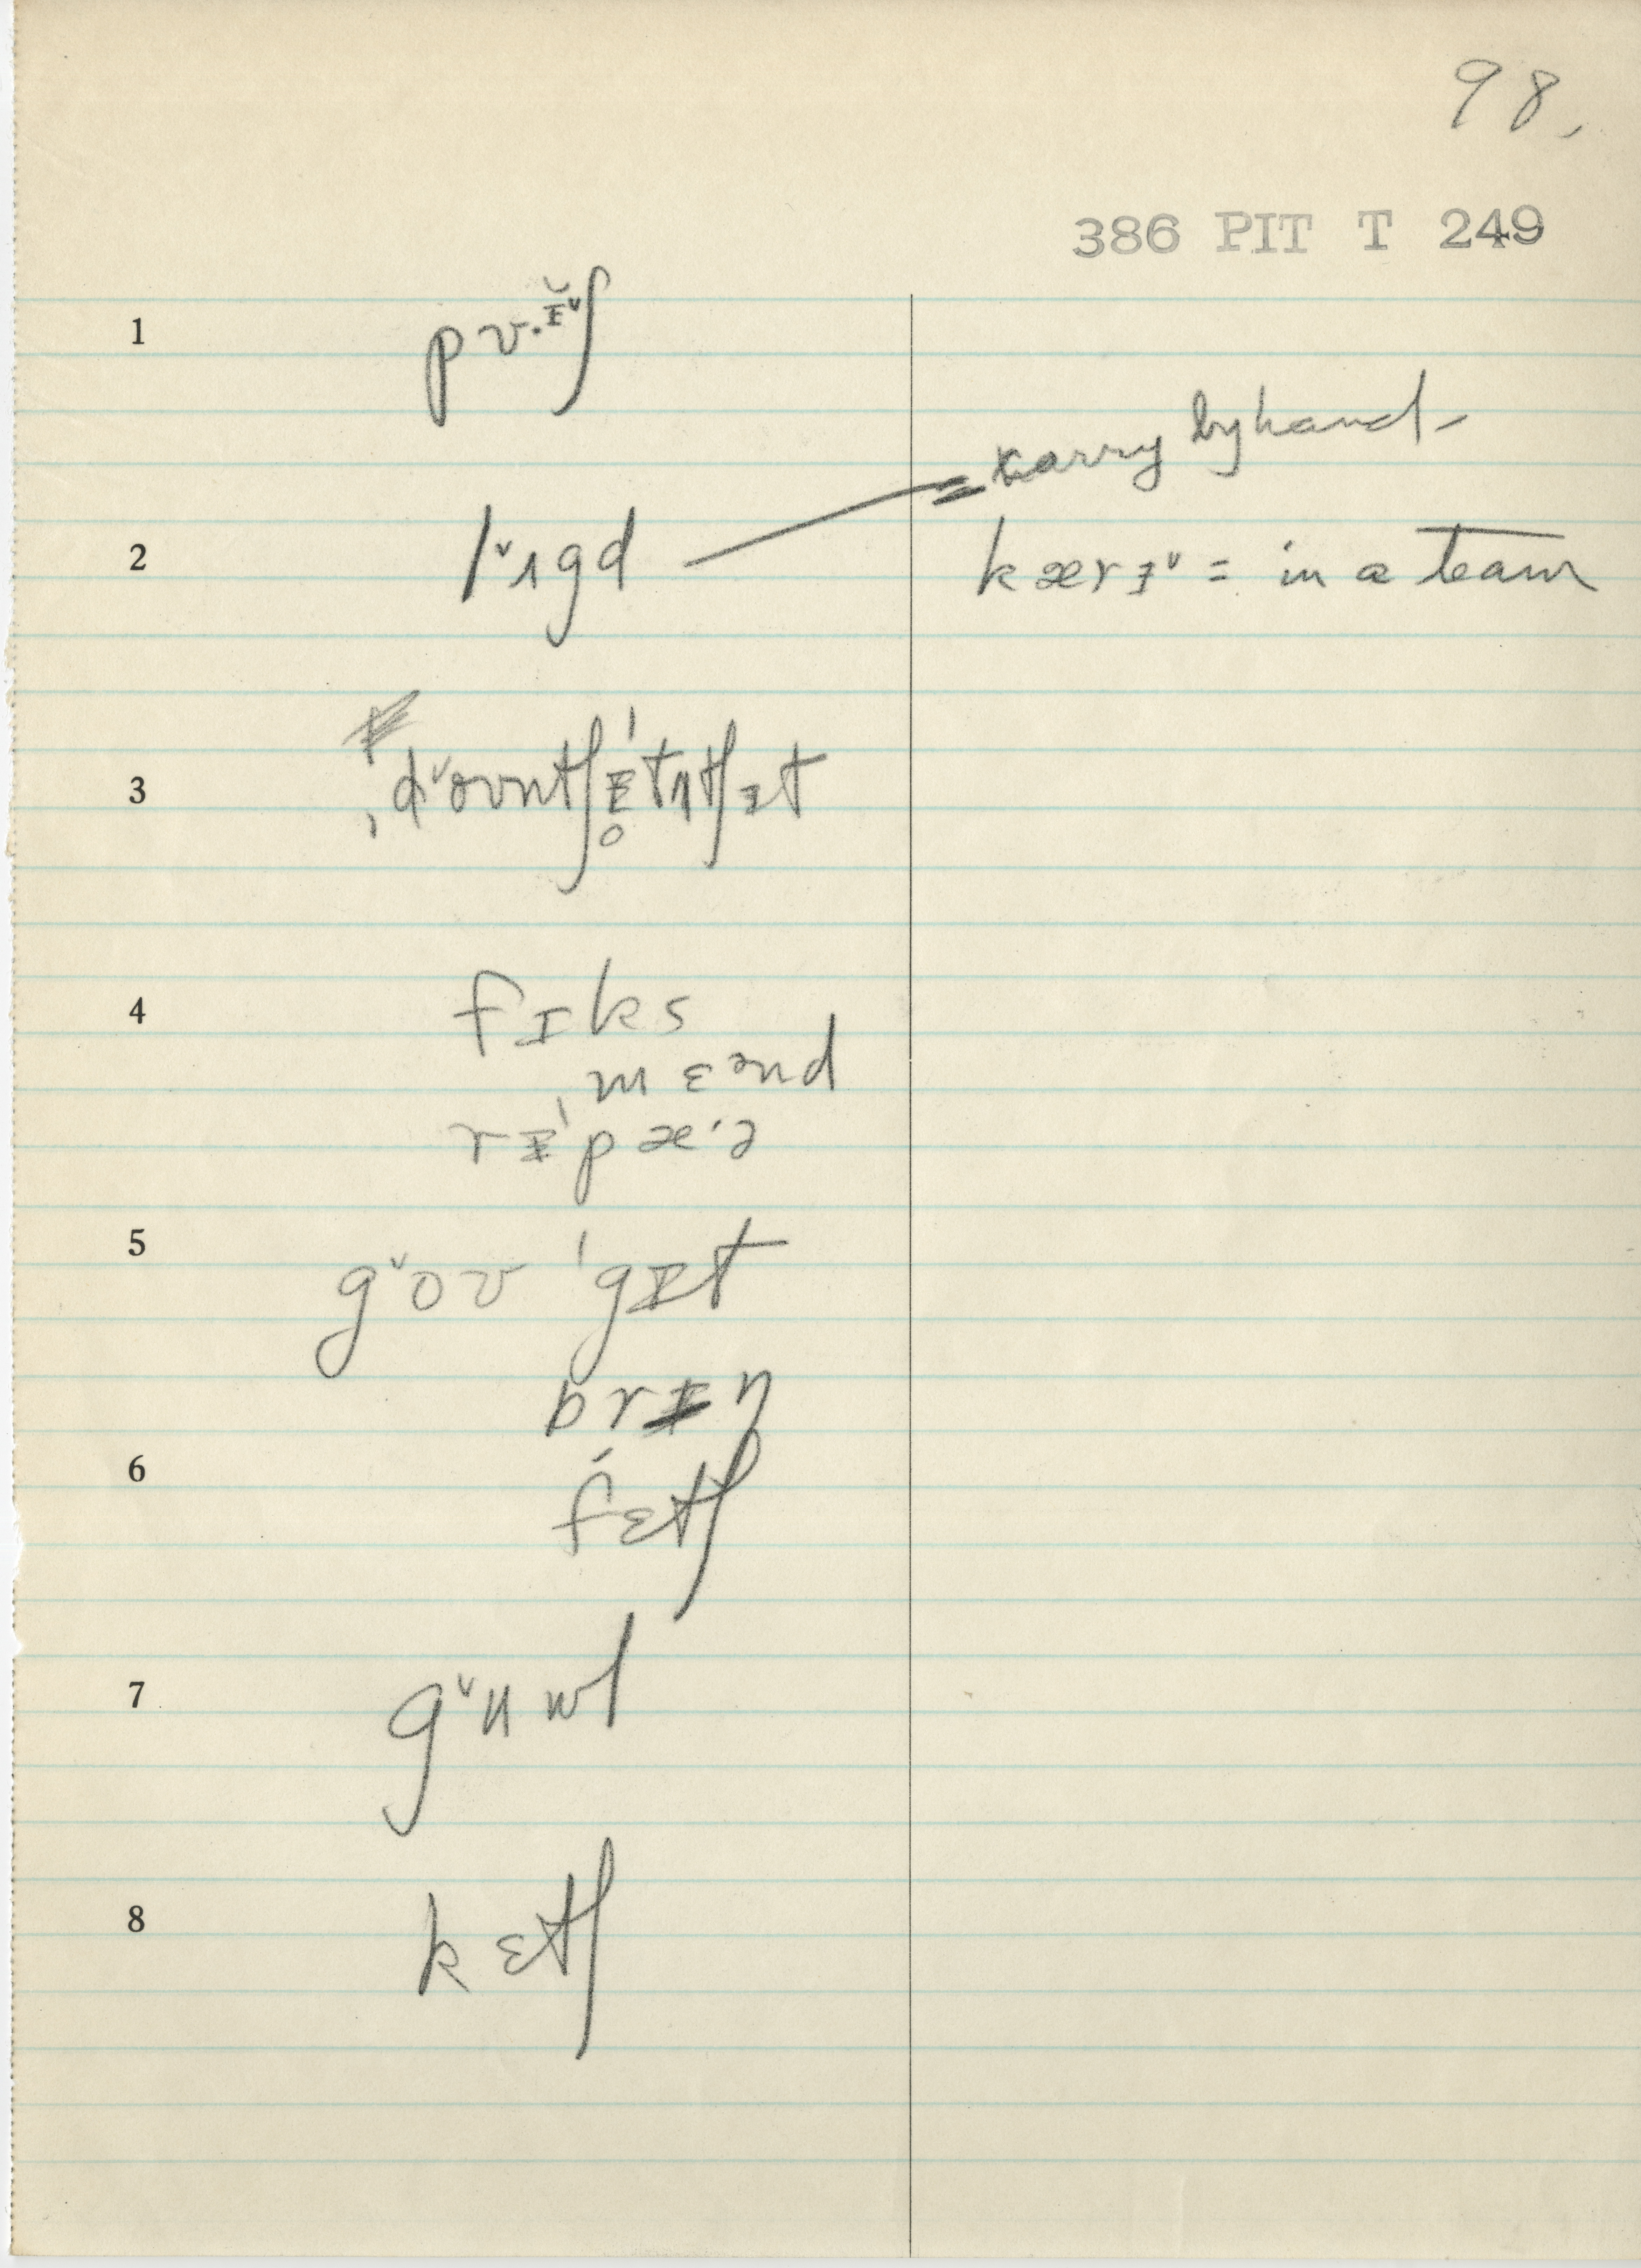 98.
386 PIT T 249
1 pʊ·ɪ̆ᵛʃ
= carry by hand -
2 lᵛɪgd kærɪᵛ = in a team
3 ˌdᵛoʊntʃɪ̥ˈtʌtʃɪt
4 fɪks
ˌmɛᵊnd
rɪˈpæ·ə
5 gᵛoʊ ˈgɪt
brɪŋ
6 fɛtʃ
7 gᵛʌwl
8 kɛtʃ